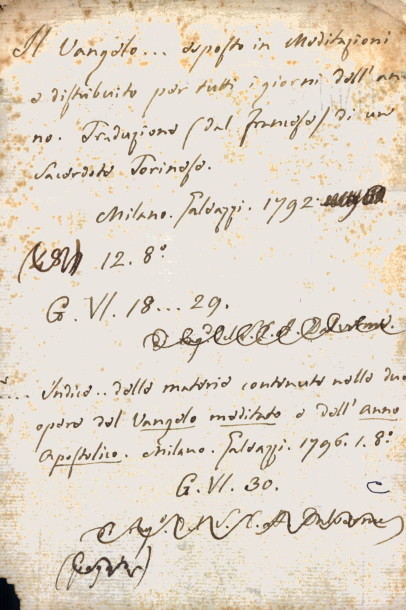 Il Vangelo... esposto in Meditazioni
e distribuito per tutti i giorni dell'an-
no. Traduzione (dal francese) di un
Sacerdote Torinese.
Milano. Galeazzi. 1792.
12. 8º
G. VI. 18... 29.
Indice.. delle materie contenute nelle due
opere del Vangelo meditato e dell'Anno
Apostolico. Milano. Galeazzi. 1796. 1. 8º
G. VI. 30.